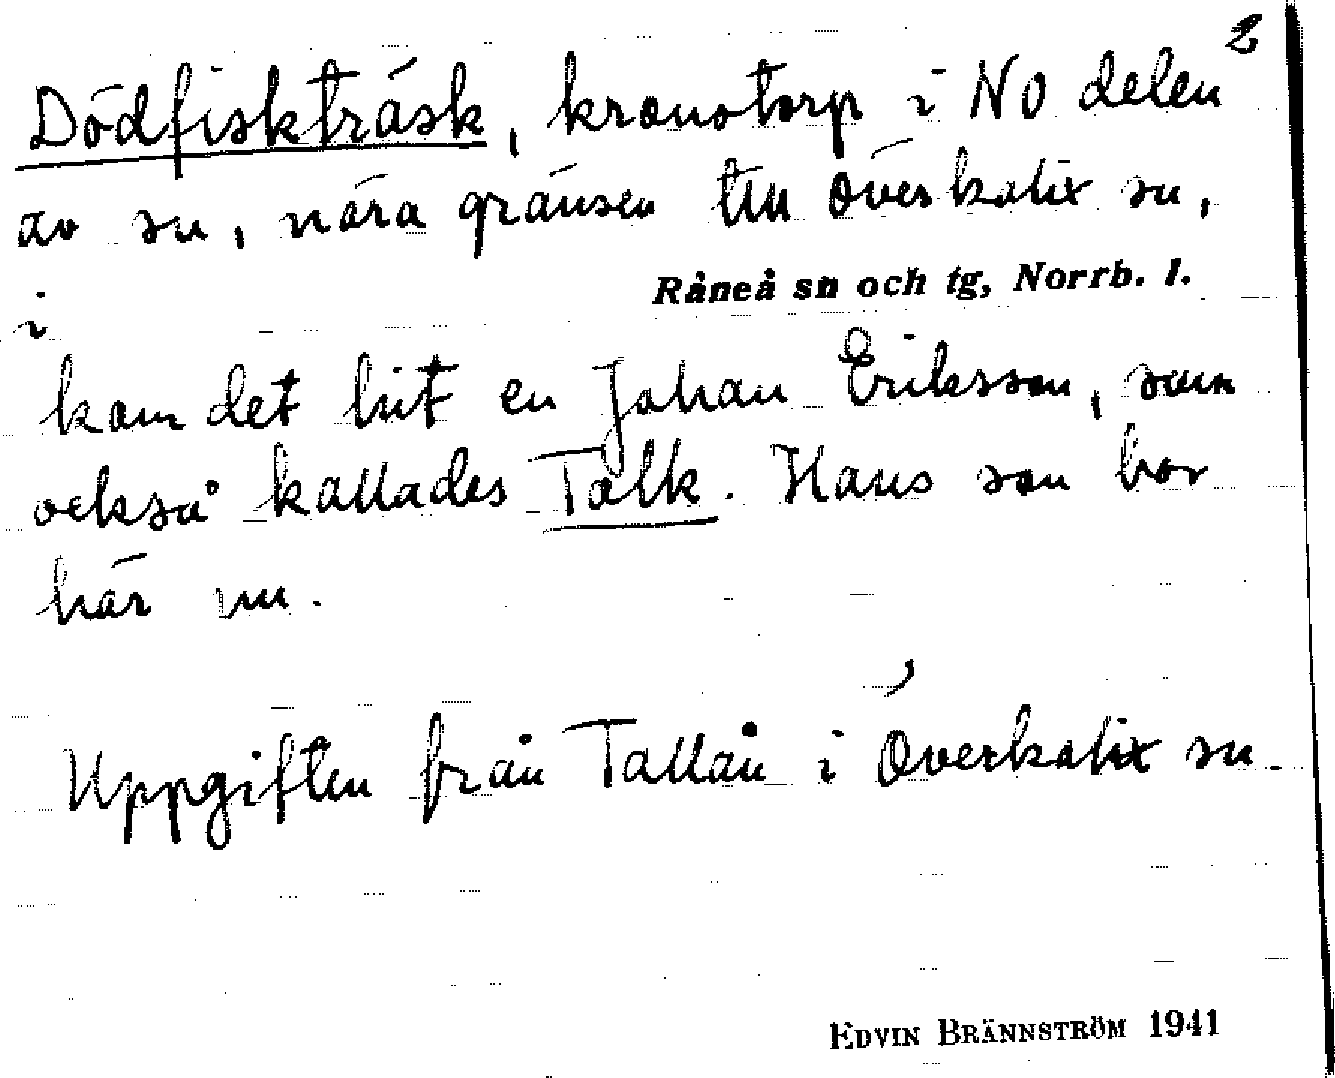 2
Dödfiskträsk, kronotorp i NO delen
av sn, nära gränsen till Överkalix sn,
Råneå sn och tg, Norrb. l.
i
kom det hit en Johan Eriksson, som
också kallades Talk. Hans son bor
här nu.
Uppgiften från Tallån i Överkalix sn.
EDVIN BRÄNNSTRÖM 1941